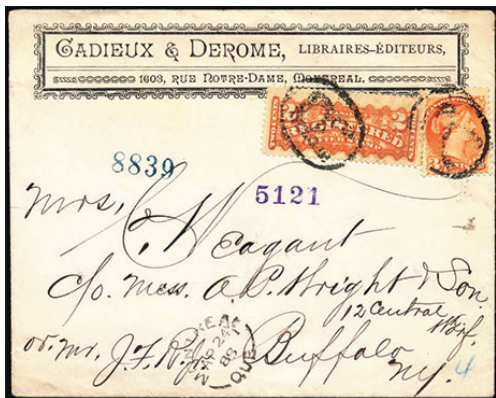 CADIEUX & DEROME, LIBRAIRES-ÉDITEURS,
1603, RUE NOTRE-DAME, MONTREAL.
2 REGISTERED 2
8839
5121
Mrs. C. W. Eagant
c/o. Mess. A. P. Wright & Son
12 Central Wharf.
or. Mr. J. F.
Buffalo
N.Y. 4
MONTREAL
24
88
QUE